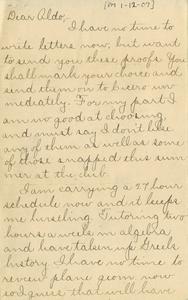 [M 1-12-07]
Dear Aldo,
I have no time to
write letters now, but want
to send you these proofs. You
shall mark your choice and
send them on to Lucero im-
mediately. For my part I
am no good at choosing
and must say I don't like
any of them as well as some
of those snapped this sum
mer at the club.
I am carrying a 27 hour
schedule now and it keeps
me hustling. Tutoring two
hours a week in algebra
and have taken up Greek
history. I have no time to
review plane geom. now
so I guess that will have